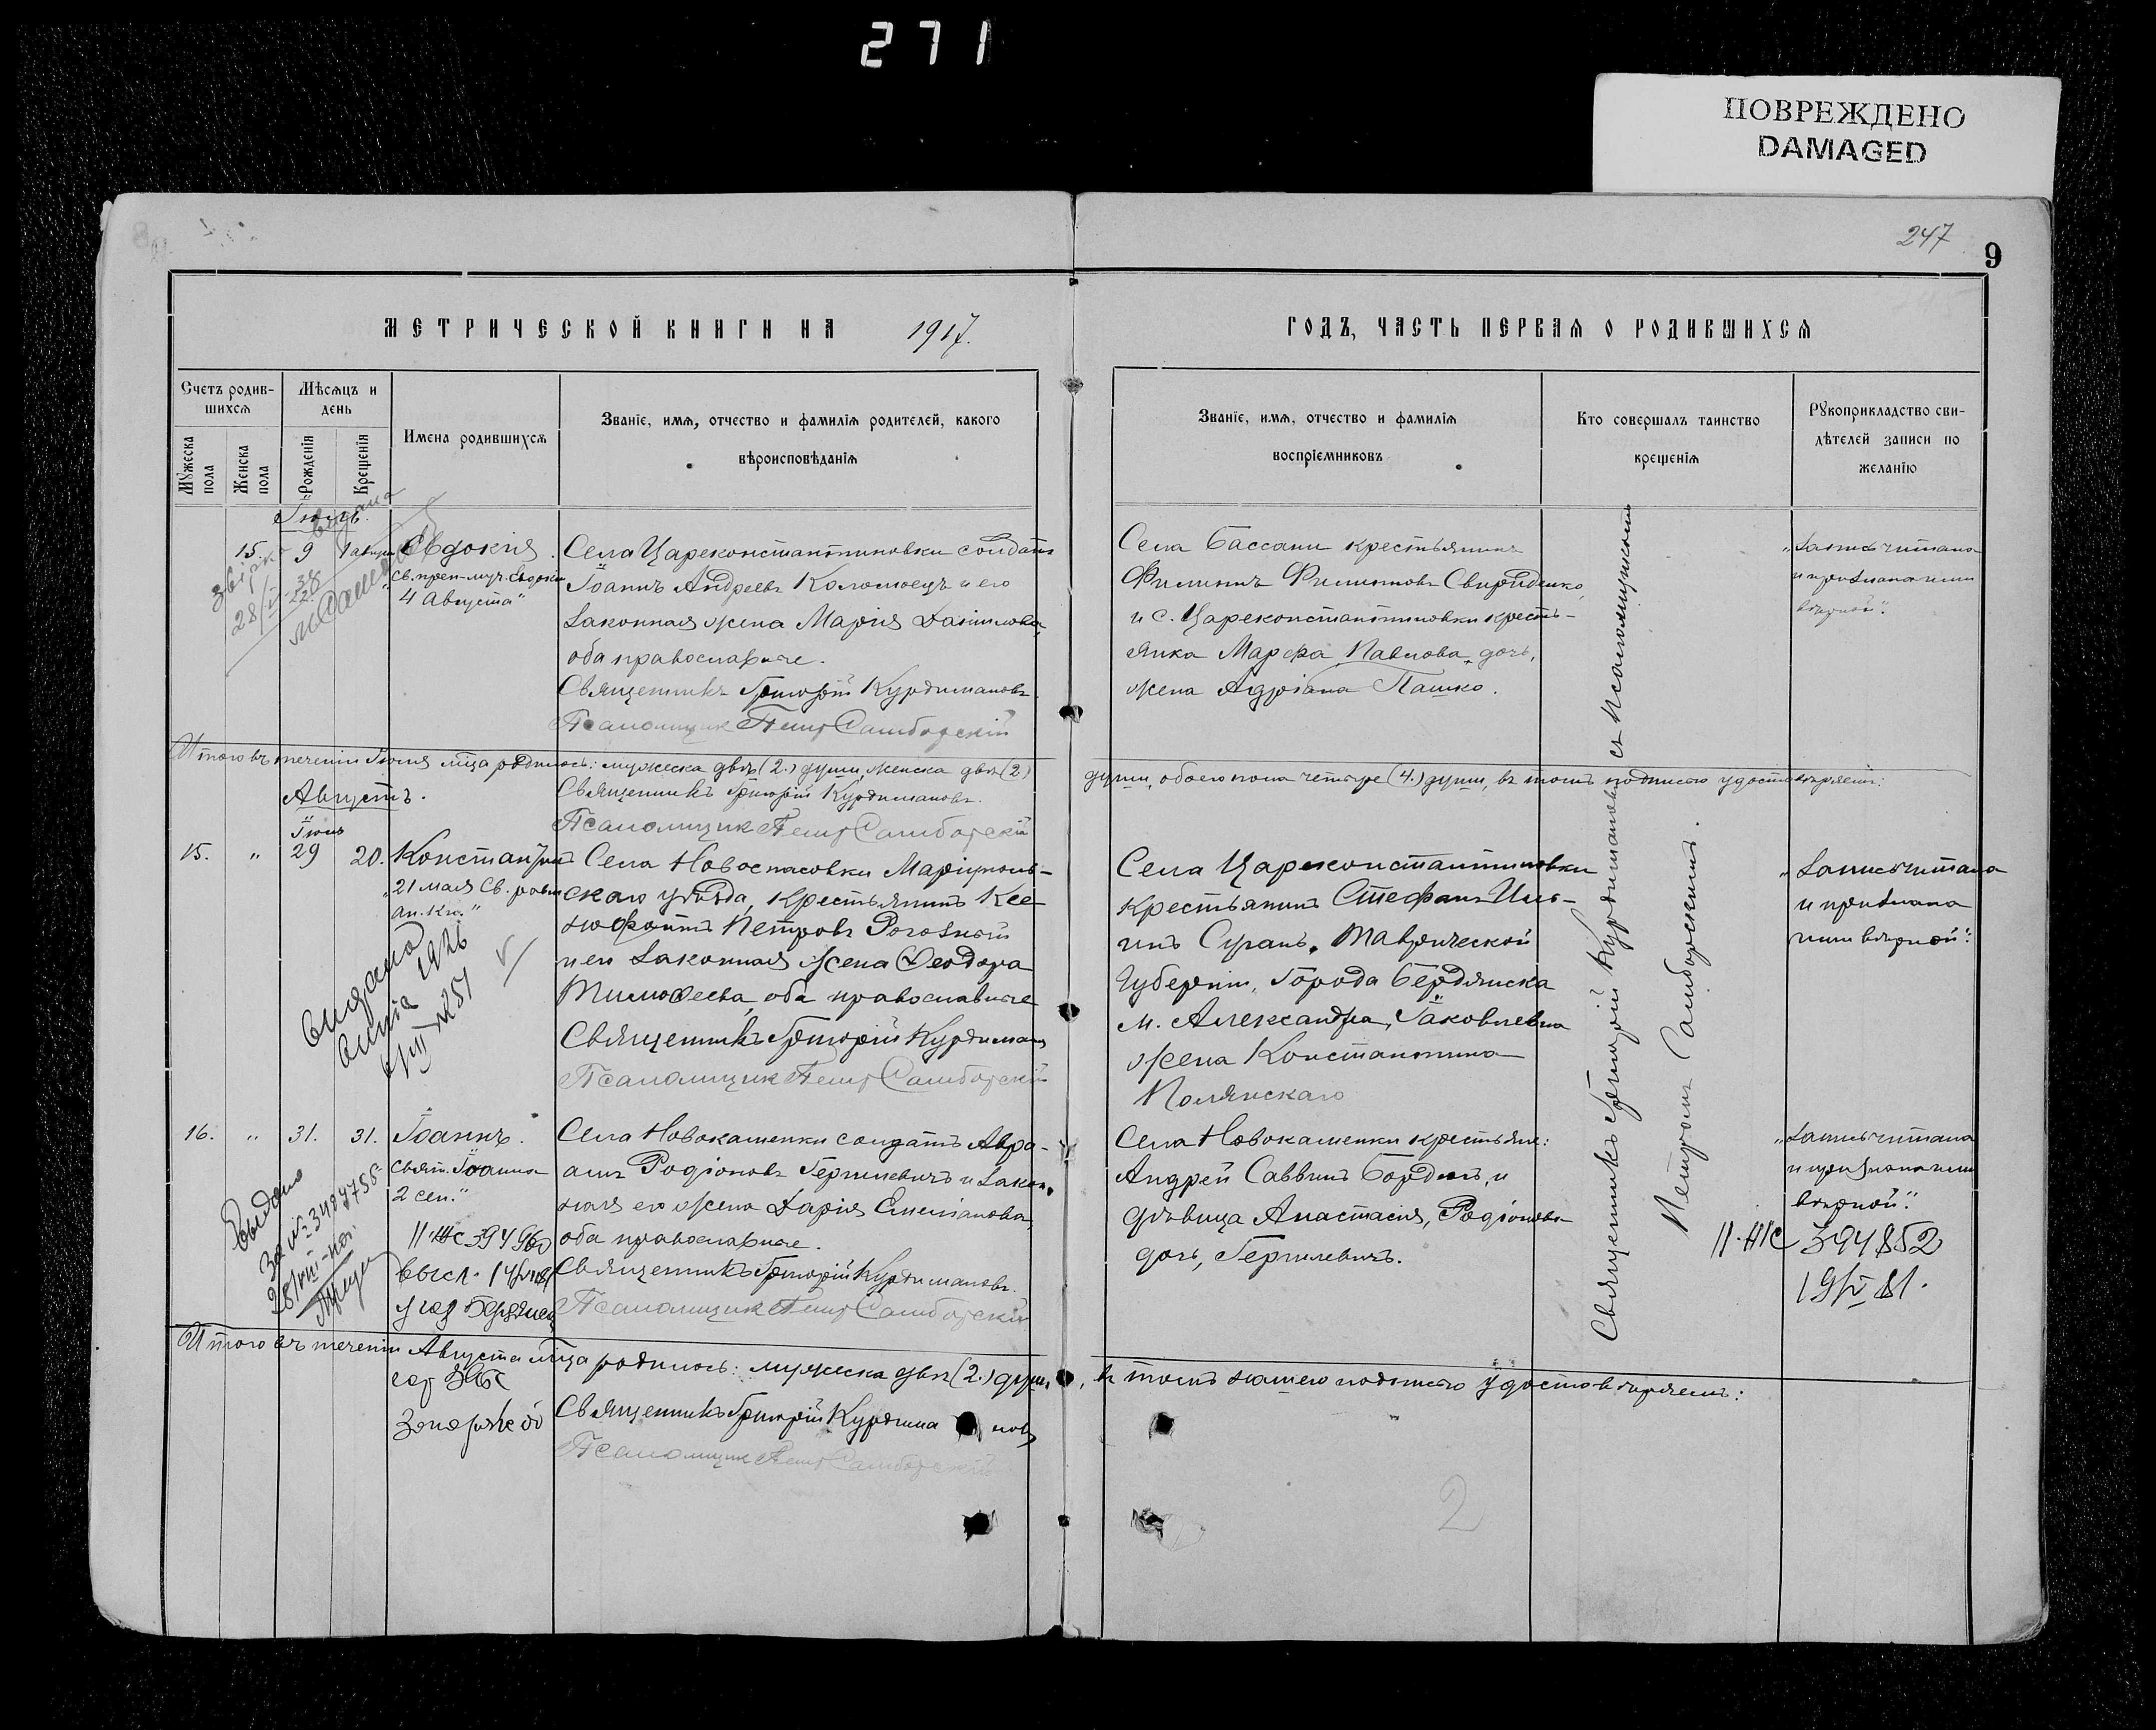 271
ПОВРЕЖДЕНО
DAMAGED
247
9
МЕТРИЧЕСКОЙ КНИГИ НА 1917.
ГОДЪ, ЧАСТЬ ПЕРВАЯ О РОДИВШИХСЯ
Счетъ родив-
шихся
Мѣсяцъ и
день
Мужеска
пола
Женска
пола
Рожденія
Крещенія
Имена родившихся
Званіе, имя, отчество и фамилія родителей, какого
вѣроисповѣданія
Званіе, имя, отчество и фамилія
воспріемниковъ
Кто совершалъ таинство
крещенія
Рукоприкладство сви-
дѣтелей записи по
желанію
15. 9 1 Евдокія.
Св. преп-муч. Евдокіи
4 Августа"
Села Цареконстантиновки солдатъ
Іоаннъ Андреевъ Коломоецъ и его
законная жена Марія Данилова,
оба православные.
Священникъ Григорій Курдимановъ.
Псаломщик Петр Самборскій
Села Бассани крестьянинъ
Филиппъ Филипповъ Свириденко,
и с. Цареконстантиновки кресть-
янка Марфа Павлова, дочь,
жена Адріана Пашко.
„Запись читана
и признана нами
вѣрной".
Итого въ теченіи Іюля мѣсяца родилось: мужеска двѣ (2.) души, женска двѣ (2)
души, обоего пола четыре (4.) души, въ томъ подписью удостовѣряемъ:
Августъ.
Священникъ Григорій Курдимановъ.
Псаломщик Петр Самборскій
Іюль
15. " 29 20. Константинъ
„21 мая Св. равн
ап. Кн."
Села Новоспасовки Маріуполь-
скаго уѣзда, крестьянинъ Ксе-
нофонтъ Петровъ Рогозный
и его законная жена Ѳеодора
Тимоѳеева, оба православные
Священникъ Григорій Курдиманов
Псаломщик Петр Самборскій
видано
1926
№ 251
Села Цареконстантиновки
крестьянинъ Стефанъ Иль-
инъ Сугакъ, Таврической
губерніи, города Бердянска
м. Александра, Іаковлевна
жена Константина
Полянскаго
„Запись читана
и признана
нами вѣрной".
16. " 31. 31. Іоаннъ.
Свят. Іоанна
2 сен."
Села Новокаменки солдатъ Авра-
амъ Родіоновъ Гергилевичъ и закон-
ная его жена Дарія Емеліанова,
оба православные.
Священникъ Григорій Курдимановъ.
Псаломщик Петр Самборскій
Выдано
II-ЖС 394960
Села Новокаменки крестьяне:
Андрей Саввинъ Бордюгъ, и
дѣвица Анастасія, Родіонова
дочь, Гергилевичъ.
„Запись читана
и признана нами
вѣрной".
II-ЖС 394852
19/V 81.
Священникъ Григорій Курдимановъ съ Псаломщикомъ
Петромъ Самборскимъ.
Итого въ теченіи Августа мѣсяца родилось: мужеска двѣ (2.) души, въ томъ нашею подписью удостовѣряемъ:
Священникъ Григорій Курдимановъ
Псаломщик Петр Самборскій
2